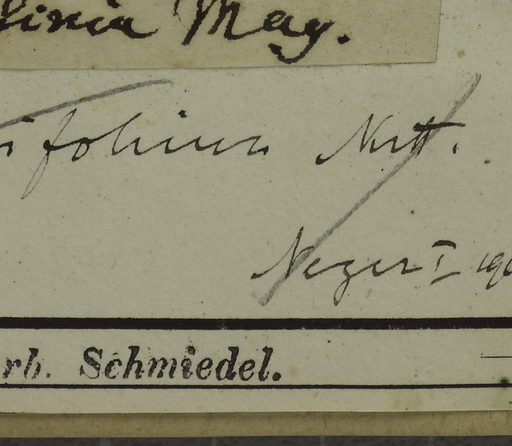 linia May.
ifolium Nutt.
Nezer I 190
rb. Schmiedel.